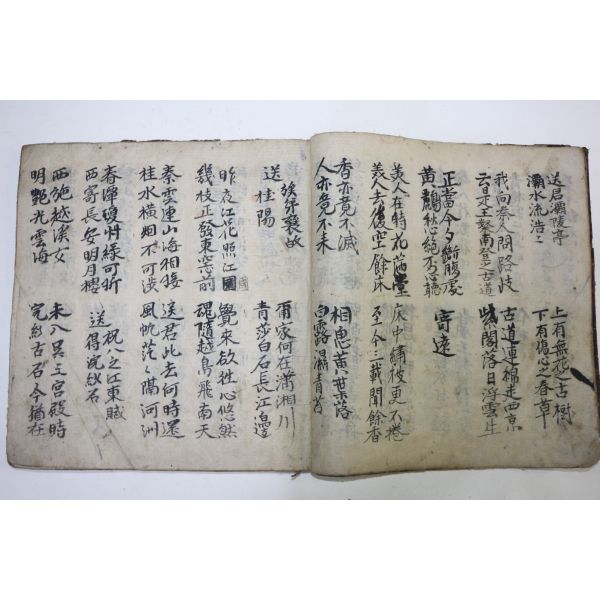 送君灞陵亭
灞水流浩々
上有無花之古樹
下有傷心之春草
我向秦人問路岐
云是王粲南登之古道
古道連綿走西京
紫閣落日浮雲生
正當今夕斷膓處
黃鸝愁絶不忍聽
寄遠
美人在時花滿堂
美人去後空餘床
床中繡被更不捲
至今三載聞餘香
香亦竟不滅
人亦竟不來
相思黃葉落
白露濕青苔
族弟襄故
送桂陽
爾家何在瀟湘川
青莎白石長江邊
昨夜江花照江國
幾枝正發東窓前
覺來欲往心悠然
魂隨越鳥飛南天
秦雲連山海相接
桂水橫烟不可涉
送君此去何時還
風帆茫々隔河洲
春潭瓊草綠可折
西寄長安明月樓
祝八之江東賦
送得浣紗石
西施越溪女
明艷光雲海
未入吳王宮殿時
浣紗古石今猶在